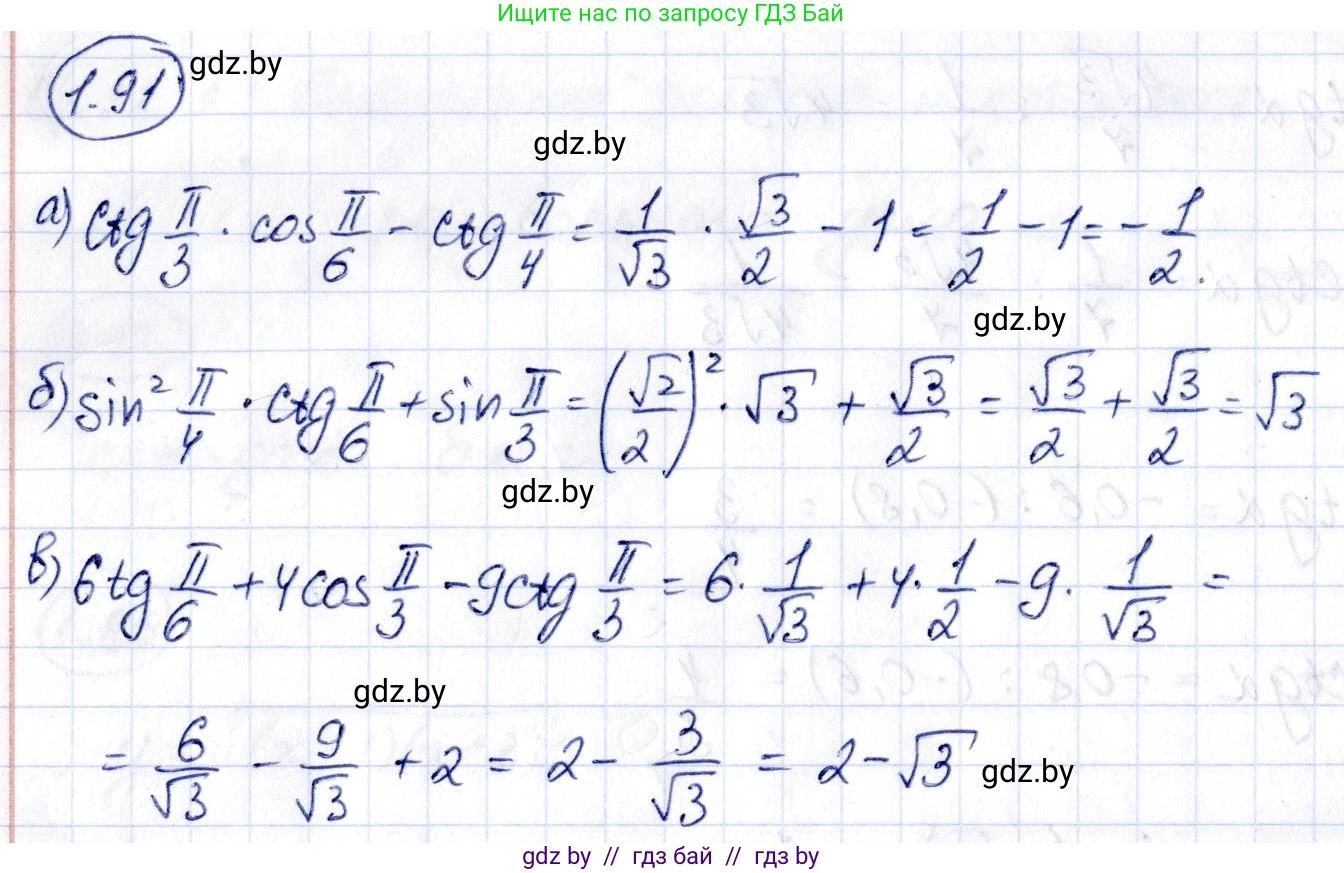 Ищите нас по запросу ГДЗ Бай
1.91 gdz.by
gdz.by
а) ctg π/3 · cos π/6 - ctg π/4 = 1/√3 · √3/2 - 1 = 1/2 - 1 = - 1/2.
gdz.by
б) sin² π/4 · ctg π/6 + sin π/3 = (√2/2)² · √3 + √3/2 = √3/2 + √3/2 = √3
gdz.by
в) 6 tg π/6 + 4 cos π/3 - 9 ctg π/3 = 6 · 1/√3 + 4 · 1/2 - 9 · 1/√3 =
gdz.by
= 6/√3 - 9/√3 + 2 = 2 - 3/√3 = 2 - √3 gdz.by
gdz by // гдз бай // гдз by